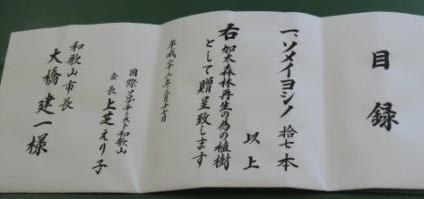 目録
一、ソメイヨシノ 拾七本
以上
右 加太森林再生の為の植樹
として贈呈致します
平成二十二年三月十七日
国際ソロプチミスト和歌山
会長 上芝えり子
和歌山市長
大橋建一様